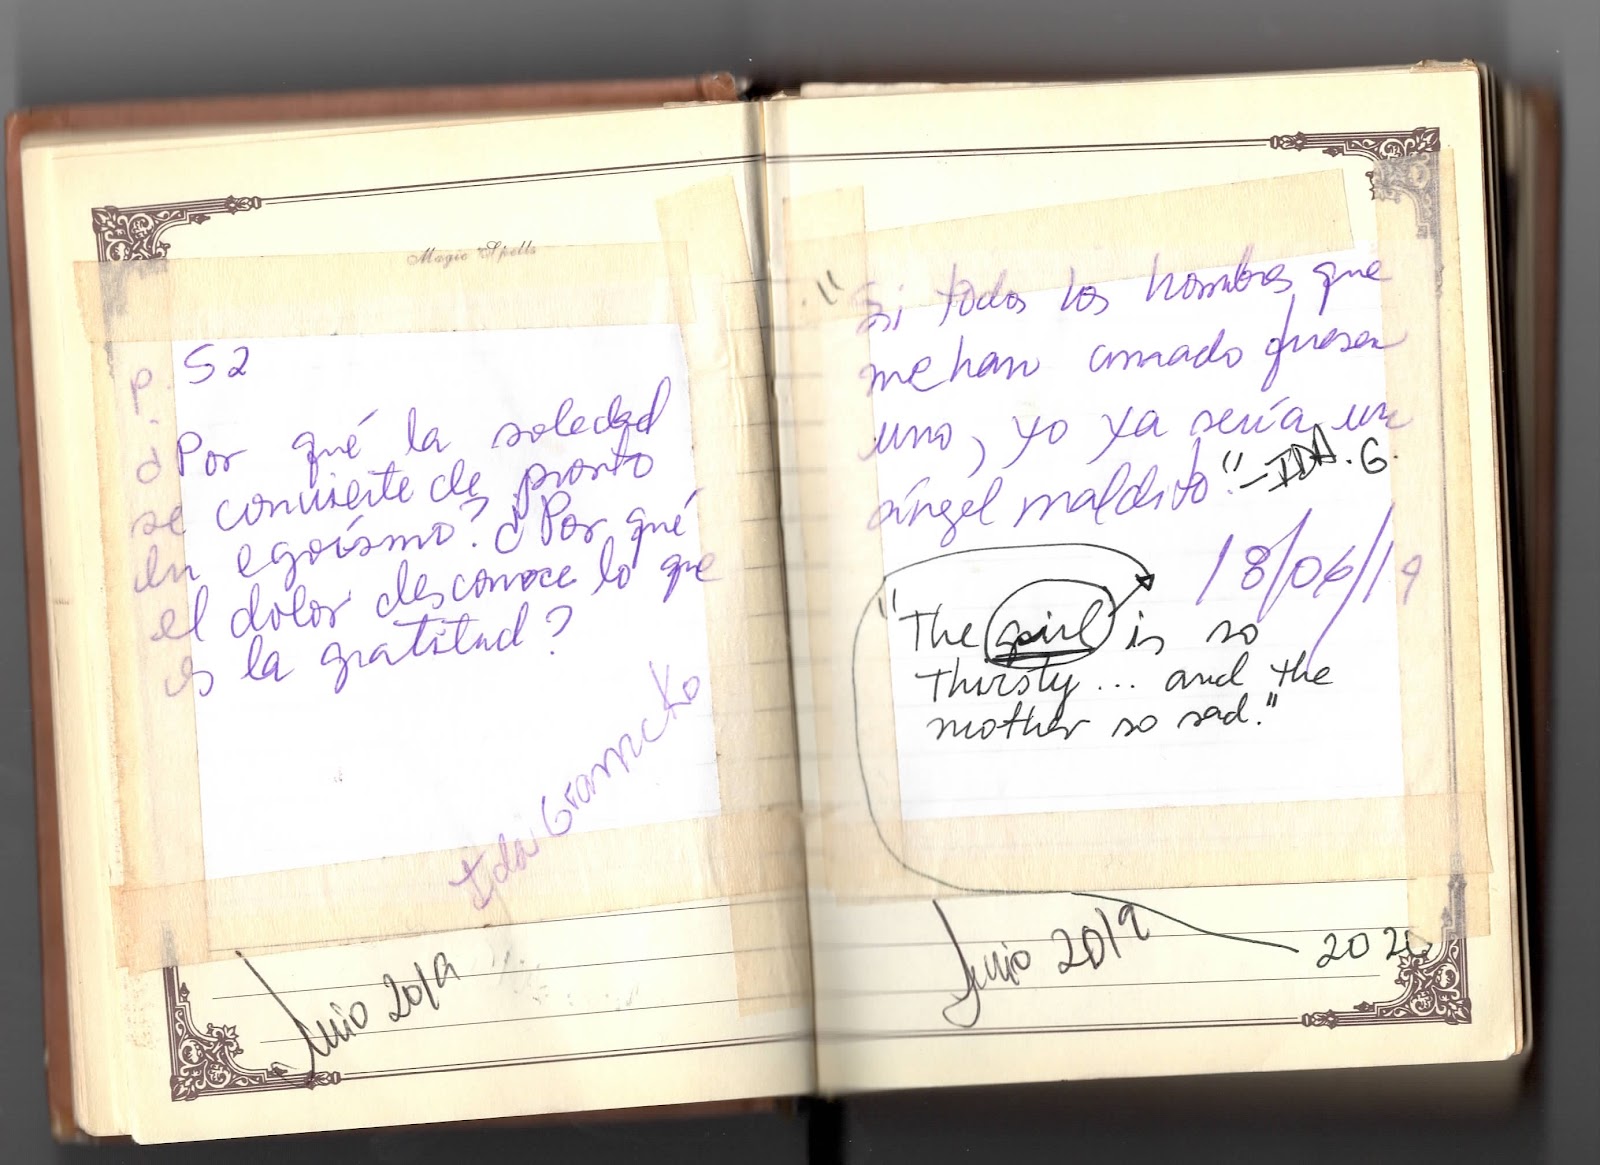 Magic Spells
p. 52
¿Por qué la soledad
se convierte de pronto
en egoísmo? ¿Por qué
el dolor desconoce lo que
es la gratitud?
Ida Gramcko
Junio 2019
"Si todos los hombres que
me han amado fuesen
uno, yo ya sería un
ángel maldito." - IDA. G.
18/06/19
"The girl is so
thirsty... and the
mother so sad."
Junio 2019